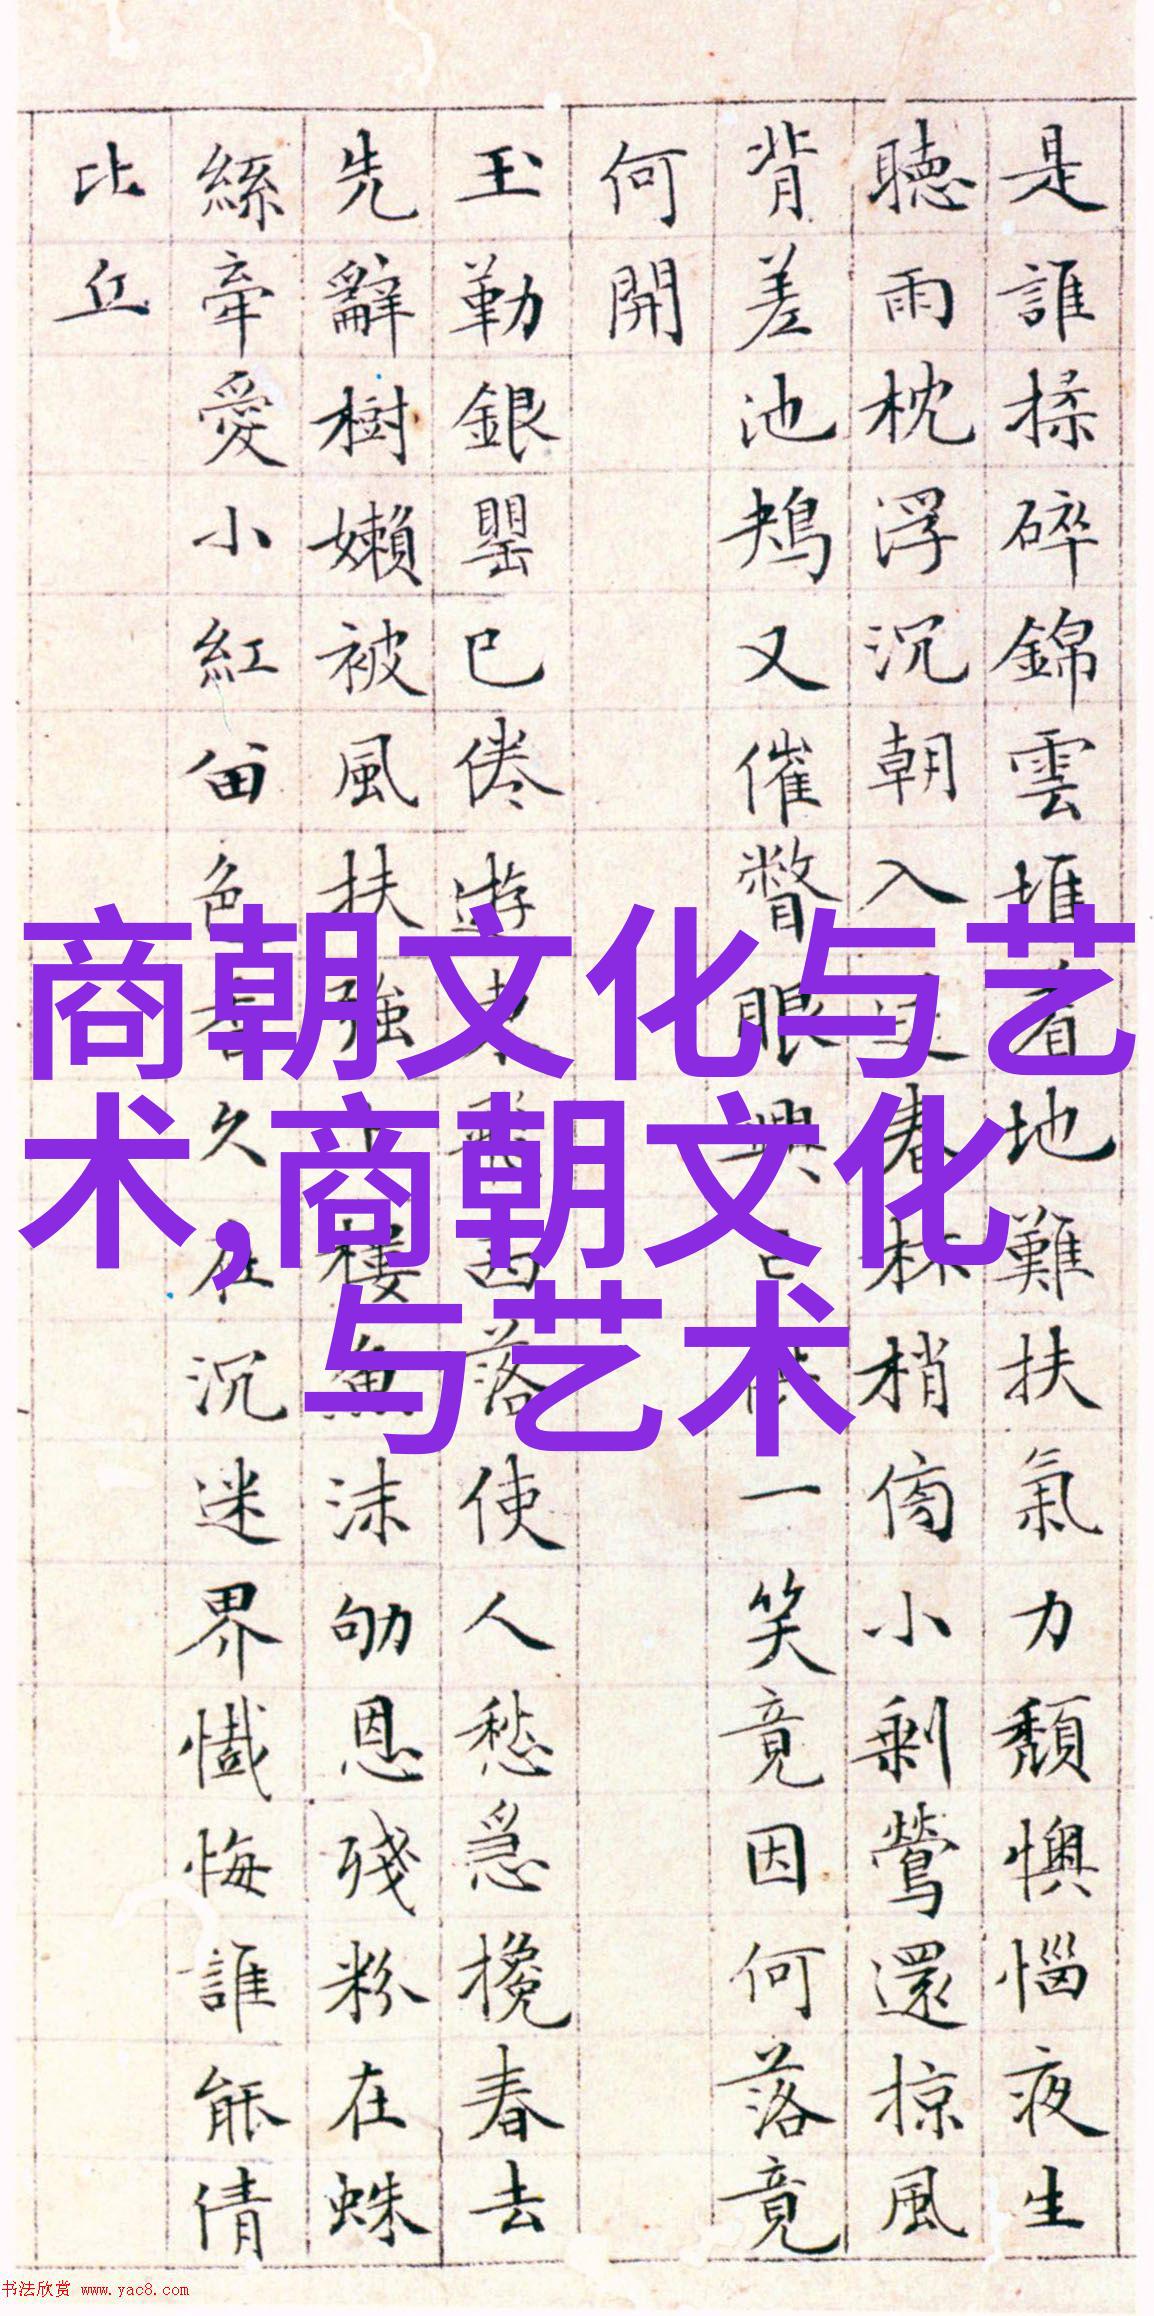 是誰揉碎錦雲堆着地難扶氣力頹懊惱夜生
聽雨枕浮沉朝入春杯梢傍小剩鶯還掠風
背差池鵊又催瞥眼興一笑竟因何落竟
何開
玉勒銀罌已倦遊東飛西落使人愁急攙春去
先辭樹嬾被風扶強樓魚沫劬恩殘粉在蛛
絲牽愛小紅留色香久在沉迷界懺悔誰能倩
比丘
商朝文化与艺
术,商朝文化
与艺术
书法欣赏 www.yac8.com